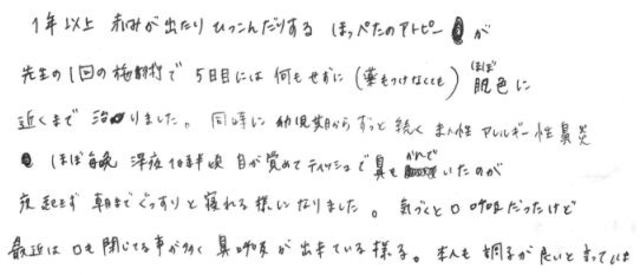 1年以上 赤みが出たりひっこんだりする ほっぺたのアトピーが
先生の1回の施術で 5日目には何もせずに(薬もつけなくても) ほぼ 肌色に
近くまで 治りました。同時に 幼児期からずっと続く 慢性アレルギー性鼻炎
ほぼ毎晩 深夜 目が覚めてティッシュで鼻を かんでいたのが
夜起きず 朝までぐっすりと寝れる様になりました。気づくと口呼吸だったけど
最近は口も閉じてる事が多く 鼻呼吸が出来ている様る。本人も調子が良いと言ってい